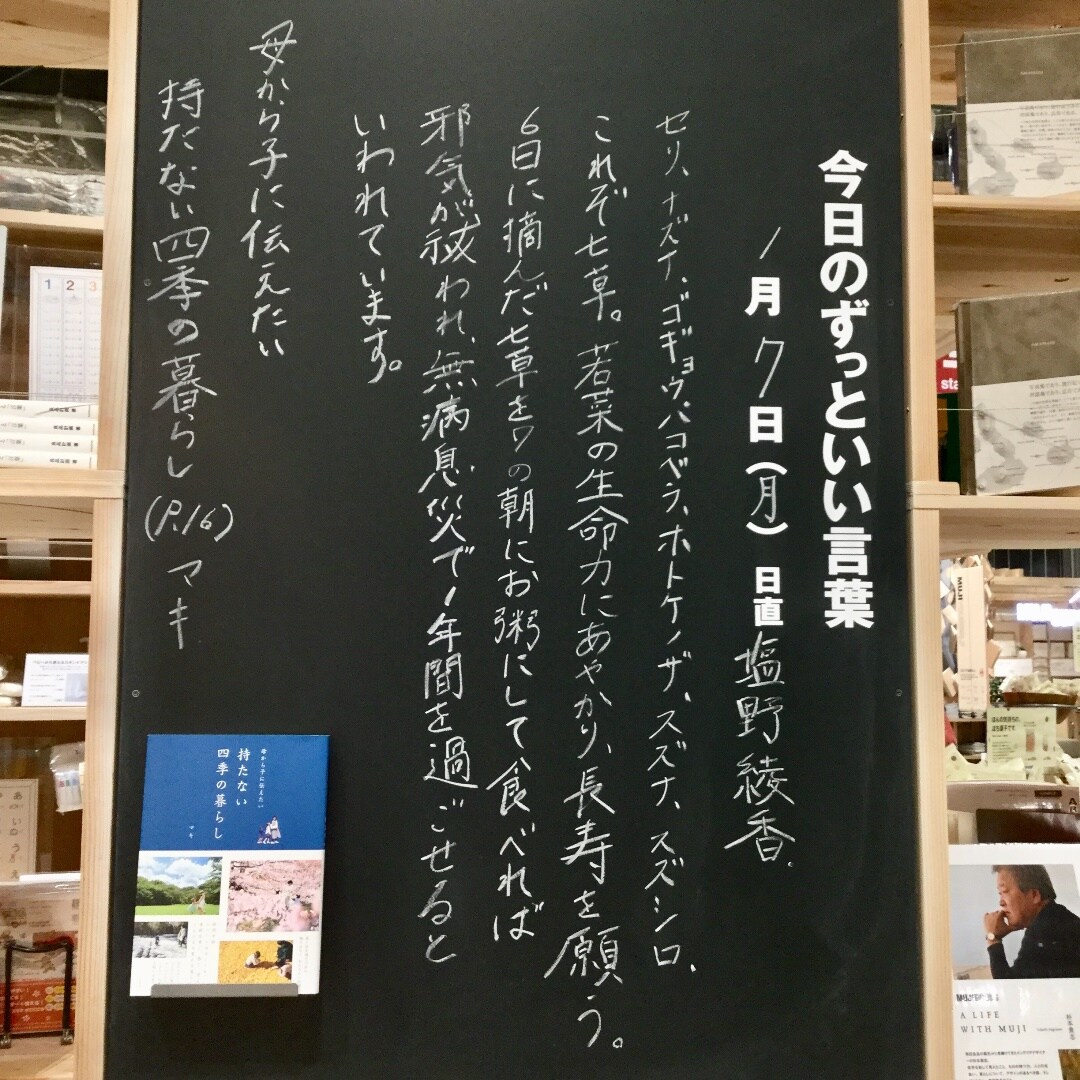 今日のずっといい言葉
1月7日(月) 日直 塩野綾香.
セリ、ナズナ、ゴギョウ、ハコベラ、ホトケノザ、スズナ、スズシロ、
これぞ七草。若菜の生命力にあやかり、長寿を願う。
6日に摘んだ七草を7の朝にお粥にして食べれば
邪気が祓われ、無病息災で1年間を過ごせると
いわれています。
母から子に伝えたい
持たない四季の暮らし(P.16) マキ
母から子に伝えたい
持たない
四季の暮らし
マキ
1 2 3
sta
MUJI
A LIFE
WITH MUJI